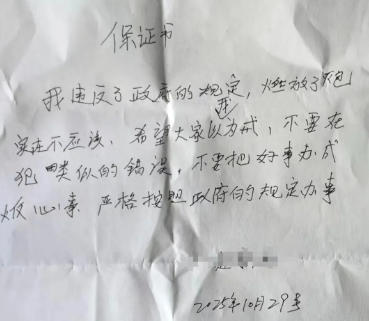 保证书
我违反了政府的规定，燃放了炮
实在不应该，希望大家以我为戒，不要在
犯类似的错误，不要把好事办成
烦心事，严格按照政府的规定办事
2025年10月29号